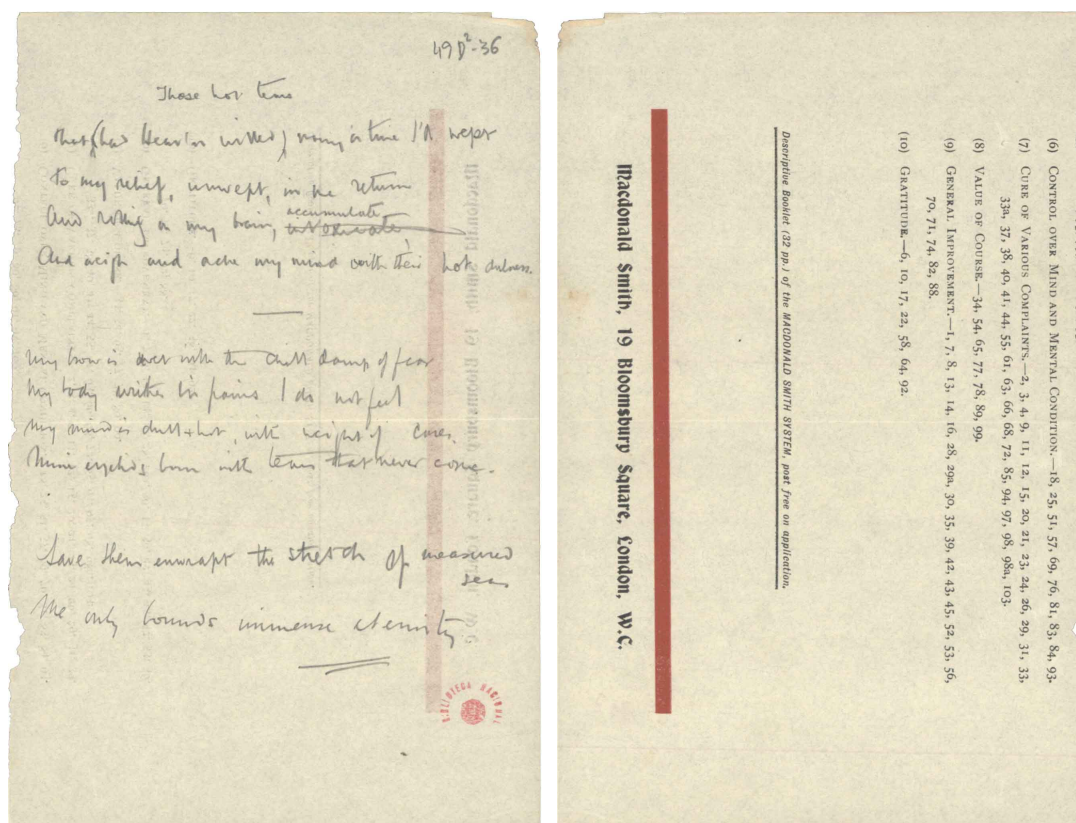 49 D²-36
Those hot tears
That (had Heaven willed) many a time I'd wept
To my relief, unwept, in me return
And rolling on my brain, accumulate
And weigh and ache my mind with their hot dulness.
My brow is wet with the chill damp of fear
My body writhes in pains I do not feel
My mind is dull & hot, with weight of cares,
Mine eyelids burn with tears that never come.
Save them enwrapt the stretch of measured
seas
Me only bounds immense eternity
BIBLIOTECA NACIONAL
(6) CONTROL OVER MIND AND MENTAL CONDITION.—18, 25, 51, 57, 69, 76, 81, 83, 84, 93.
(7) CURE OF VARIOUS COMPLAINTS.—2, 3, 4, 9, 11, 12, 15, 20, 21, 23, 24, 26, 29, 31, 33,
33a, 37, 38, 40, 41, 44, 55, 61, 63, 66, 68, 72, 85, 94, 97, 98, 98a, 103.
(8) VALUE OF COURSE.—34, 54, 65, 77, 78, 89, 99.
(9) GENERAL IMPROVEMENT.—1, 7, 8, 13, 14, 16, 28, 29a, 30, 35, 39, 42, 43, 45, 52, 53, 56,
70, 71, 74, 82, 88.
(10) GRATITUDE.—6, 10, 17, 22, 58, 64, 92.
Descriptive Booklet (32 pp.) of the MACDONALD SMITH SYSTEM, post free on application.
Macdonald Smith, 19 Bloomsbury Square, London, W.C.